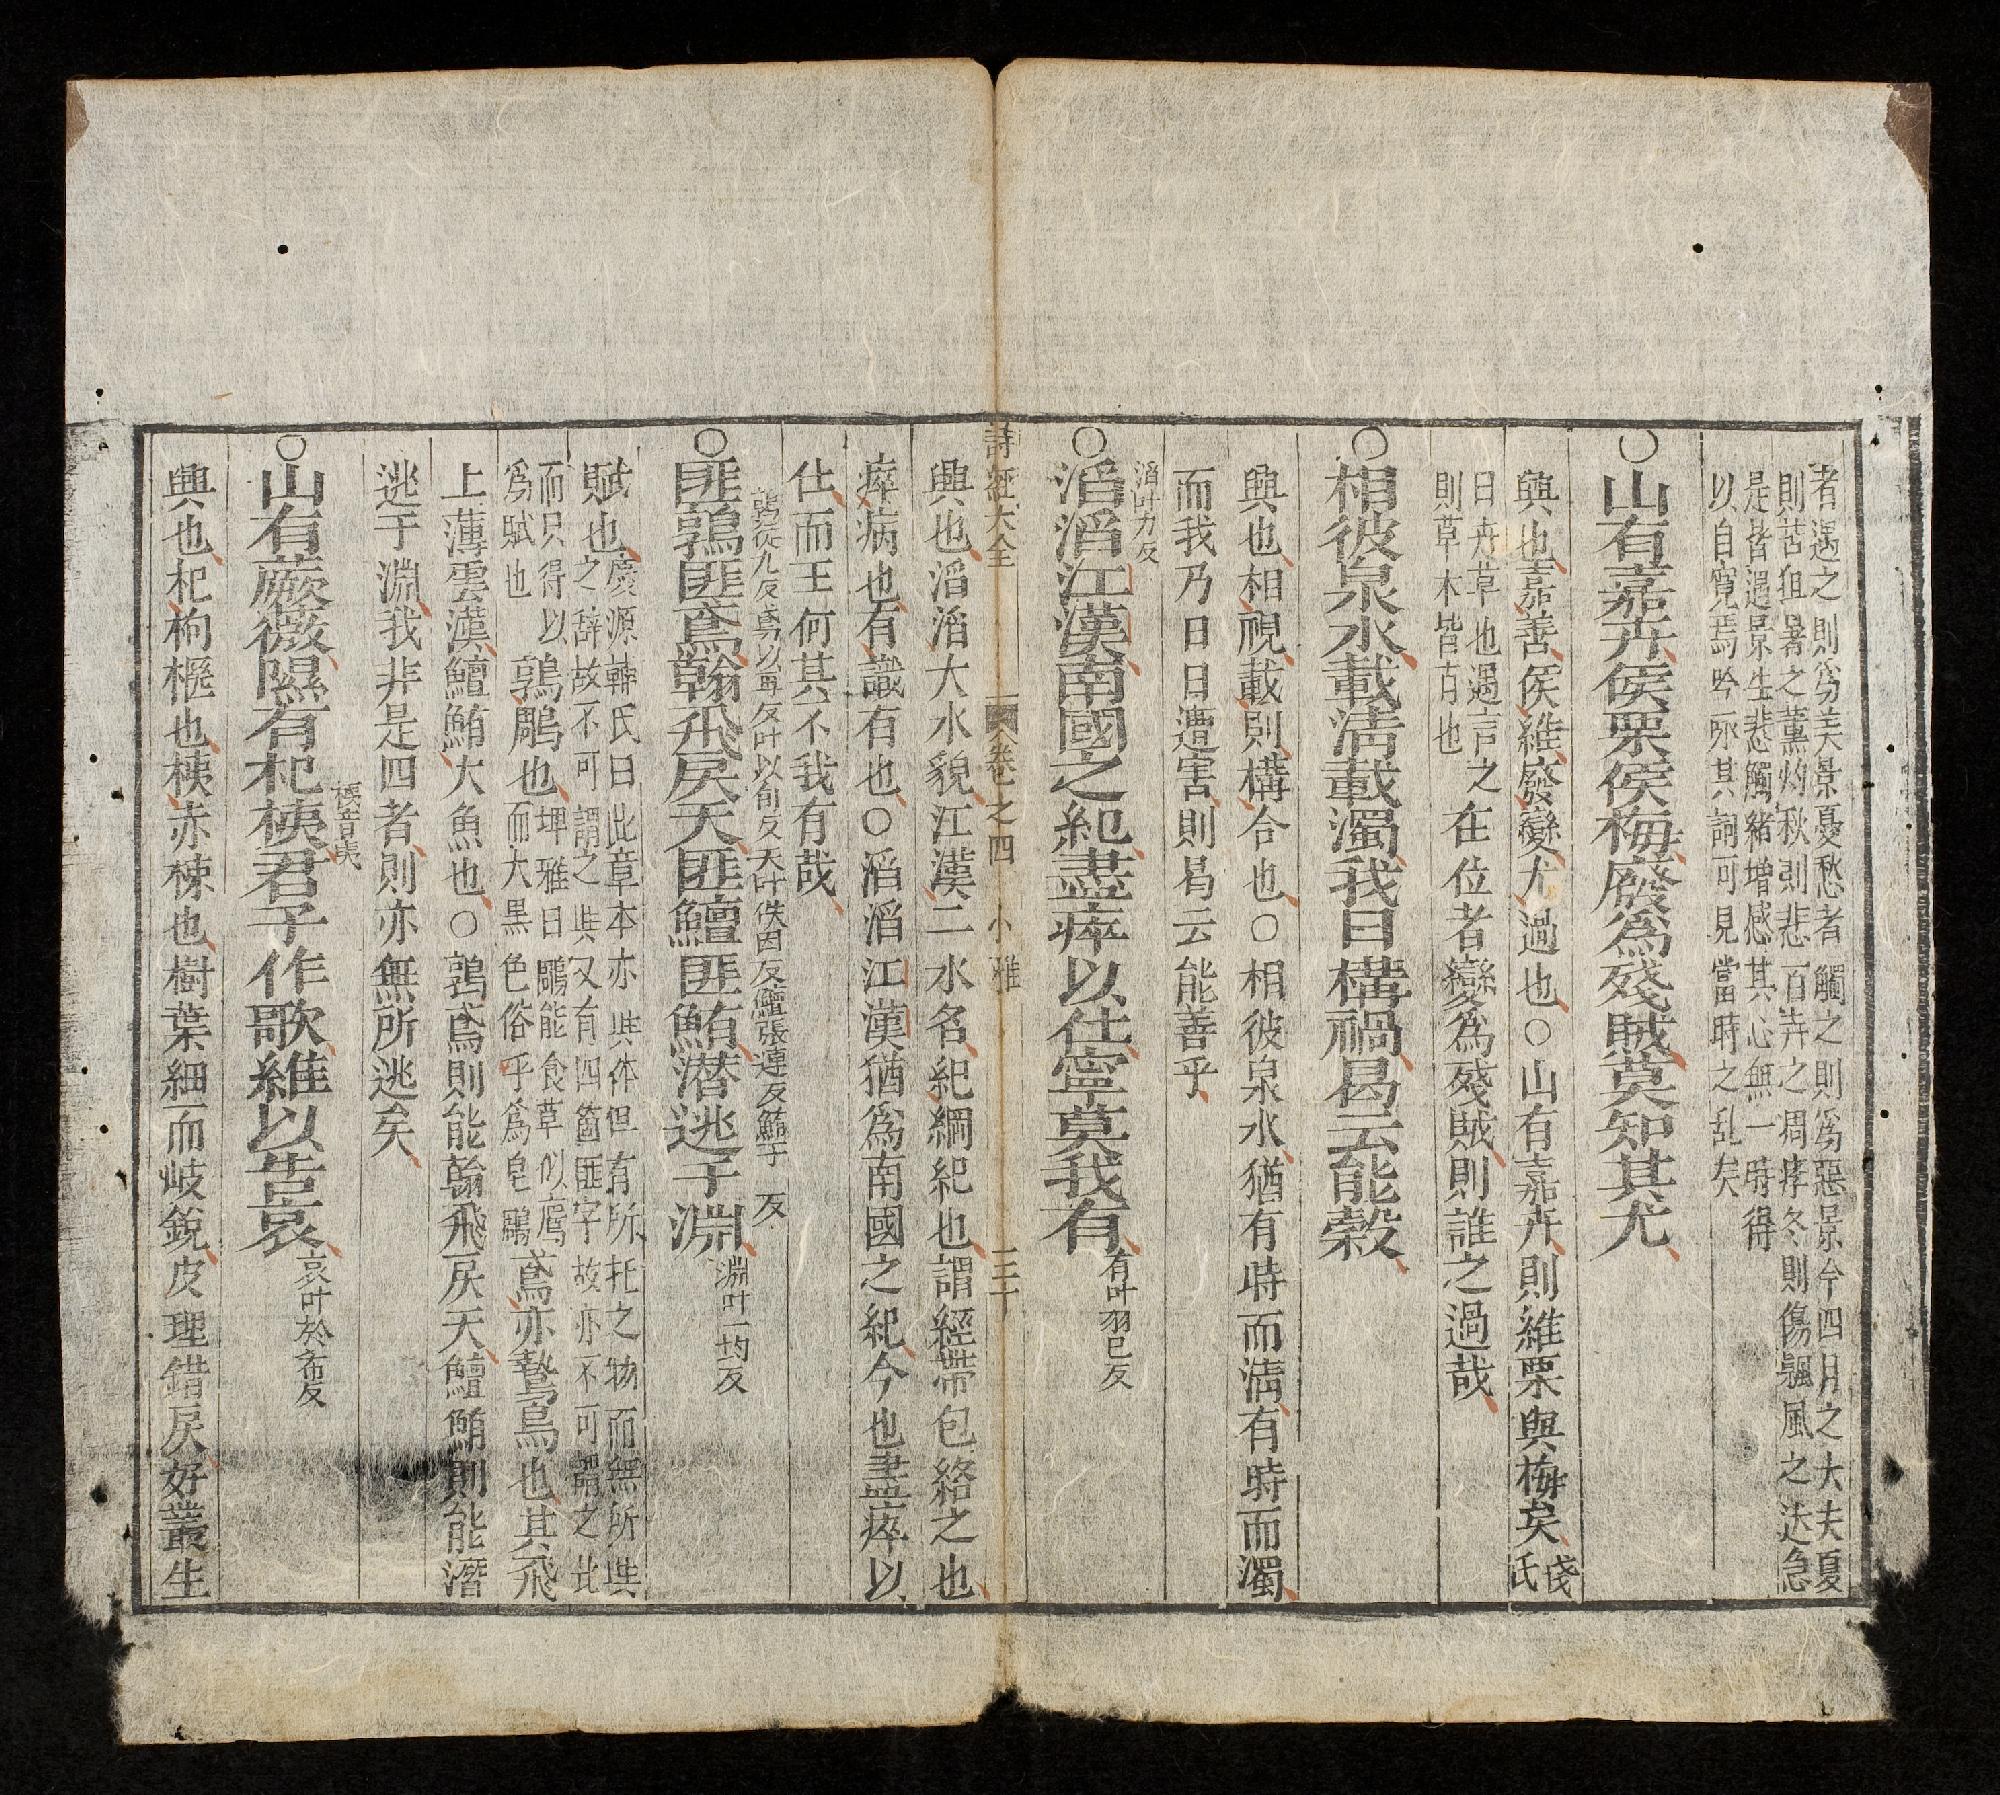 者遇之則爲美景憂愁者觸之則爲惡景今四月之大夫夏
則苦徂暑之薰灼秋則悲百卉之凋瘁冬則傷飄風之迏急
是皆遇景生悲觸緒增感其心無一時得
以自寬焉吟咏其詞可見當時之乱矣
○山有嘉卉侯栗侯梅廢爲殘賊莫知其尤
興也嘉善侯維廢變尤過也○山有嘉卉則維栗與梅矣茂氏
曰卉草也遇言之
則草木皆卉也
在位者變爲殘賊則誰之過哉
○相彼泉水載清載濁我日構禍曷云能穀
興也相視載則構合也○相彼泉水猶有時而清有時而濁
而我乃日日遭害則曷云能善乎
滔叶力反
○滔滔江漢南國之紀盡瘁以仕寧莫我有有叶羽已反
詩經大全 卷之四 小雅 三十
興也滔滔大水貌江漢二水名紀綱紀也謂經帶包絡之也
瘁病也有識有也○滔滔江漢猶爲南國之紀今也盡瘁以
仕而王何其不我有哉
鶉從九反鳶以專反叶以旬反天叶佚因反鱣張連反鮪于 反
○匪鶉匪鳶翰飛戾天匪鱣匪鮪潜逃于淵淵叶一均反
賦也慶源輔氏曰此章本亦興体但有所托之物而無所興
之辞故不可謂之興又有四箇匪字故亦不可謂之比
而只得以
爲賦也
鶉鵰也埤雅曰鵰能食草似鷹
而大黒色俗乎爲皂鵰
鳶亦鷙鳥也其飛
上薄雲漢鱣鮪大魚也○鶉鳶則能翰飛戾天鱣鮪則能潛
逃于淵我非是四者則亦無所逃矣
桋音夷
○山有蕨薇隰有杞桋君子作歌維以告哀哀叶於希反
興也杞枸檵也桋赤栜也樹葉細而岐銳皮理錯戾好叢生